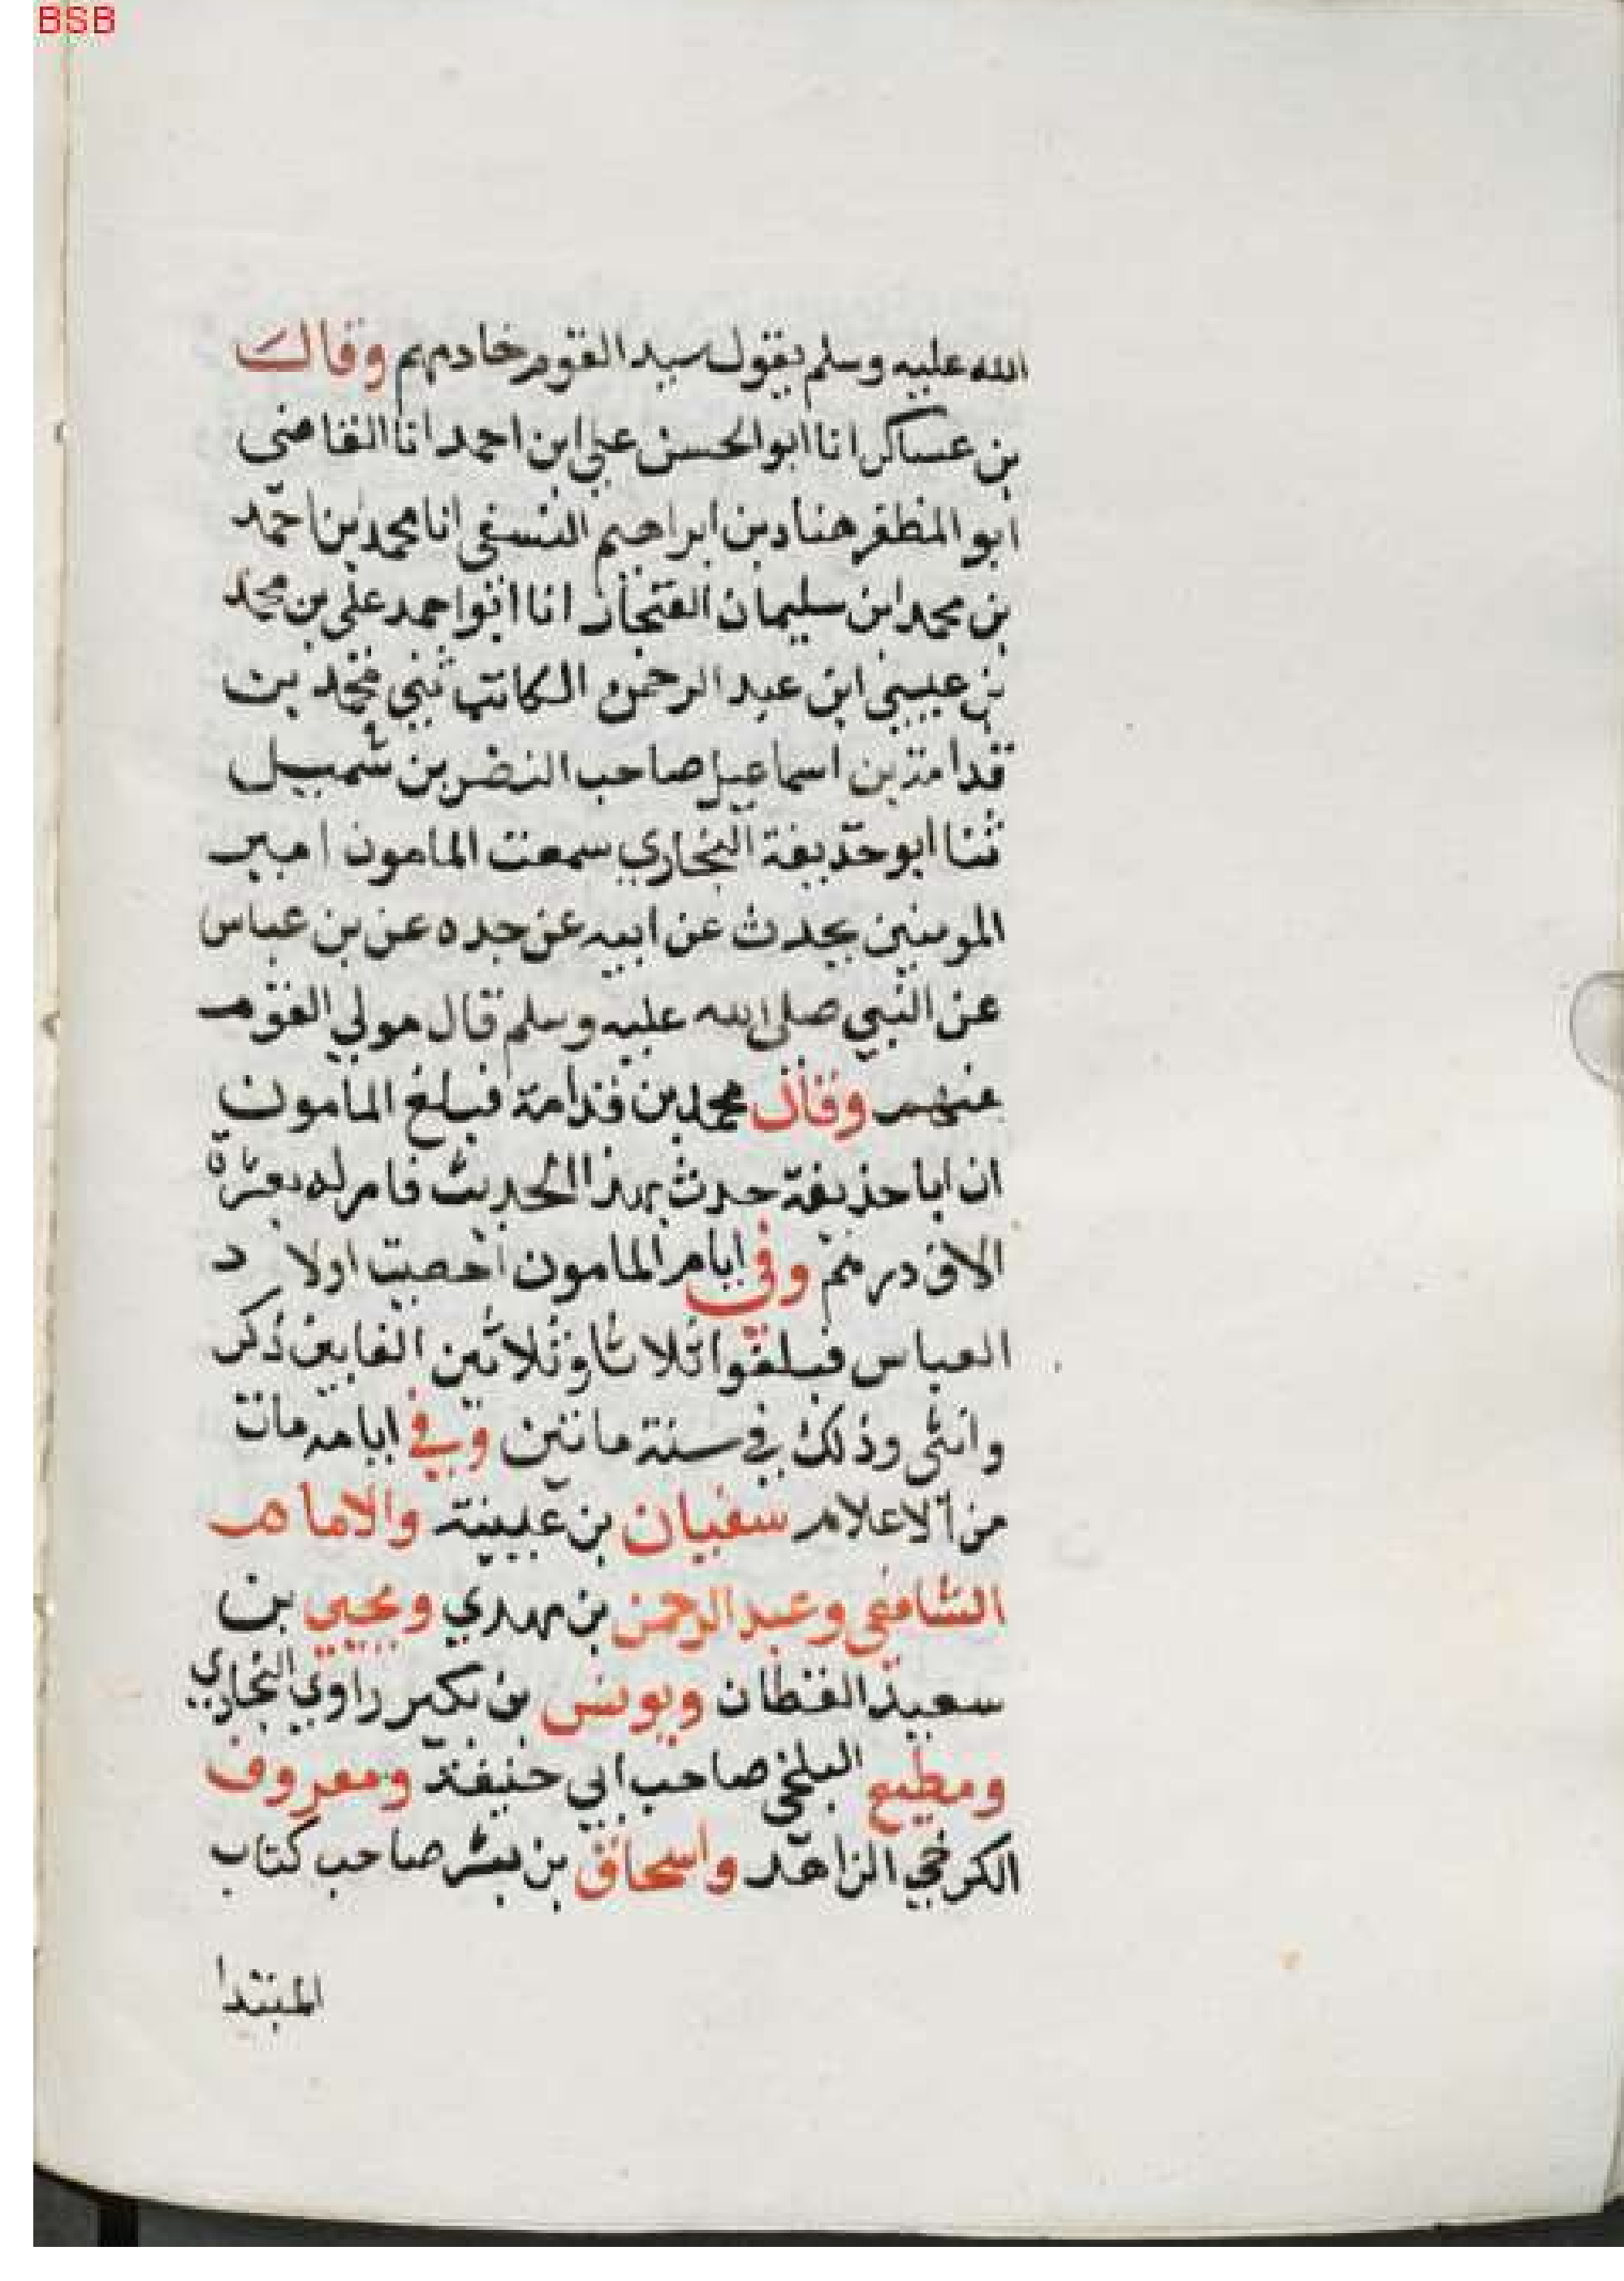 BSB
الله عليه وسلم يقول سيد القوم خادمهم وقال
بن عساكر انا ابو الحسن علي ابن احمد انا القاضي
ابو المظفر هناد بن ابراهيم النسفي انا محمد بن احمد
بن محمد ابن سليمان الفنجار انا ابو احمد علي بن محمد
بن عيسي ابن عبد الرحمن الكاتب ثني محمد بن
قدامة بن اسماعيل صاحب النضر بن شميل
ثنا ابو حذيفة البخاري سمعت المامون امير
المومنين يحدث عن ابيه عن جده عن بن عباس
عن النبي صلى الله عليه وسلم قال مولي القوم
منهم وقال محمد بن قدامة فبلغ المامون
ان ابا حذيفة حدث بهذا الحديث فامر له بعشرة
الاف درهم وفي ايام المامون احصيت اولاد
العباس فبلغوا ثلاثا وثلاثين الفا بين ذكر
وانثى وذلك في سنة ماتين وفي ايامه مات
من الاعلام سفيان بن عيينة والامام
الشافعي وعبد الرحمن بن مهدي ويحيي بن
سعيد القطان ويونس بن بكير راوي البخاري
ومطيع البلخي صاحب ابي حنيفة ومعروف
الكرخي الزاهد واسحاق بن بشر صاحب كتاب
المبتدا